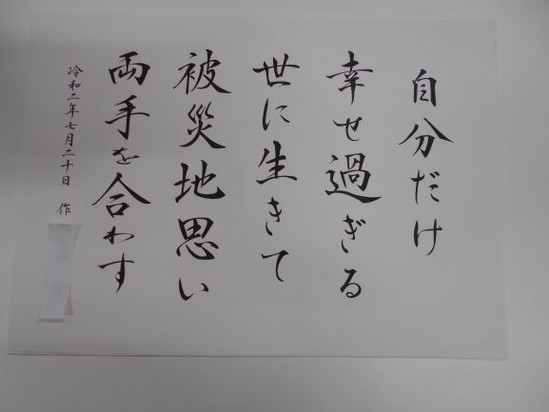 自分だけ
幸せ過ぎる
世に生きて
被災地思い
両手を合わす
令和二年七月二十日 作